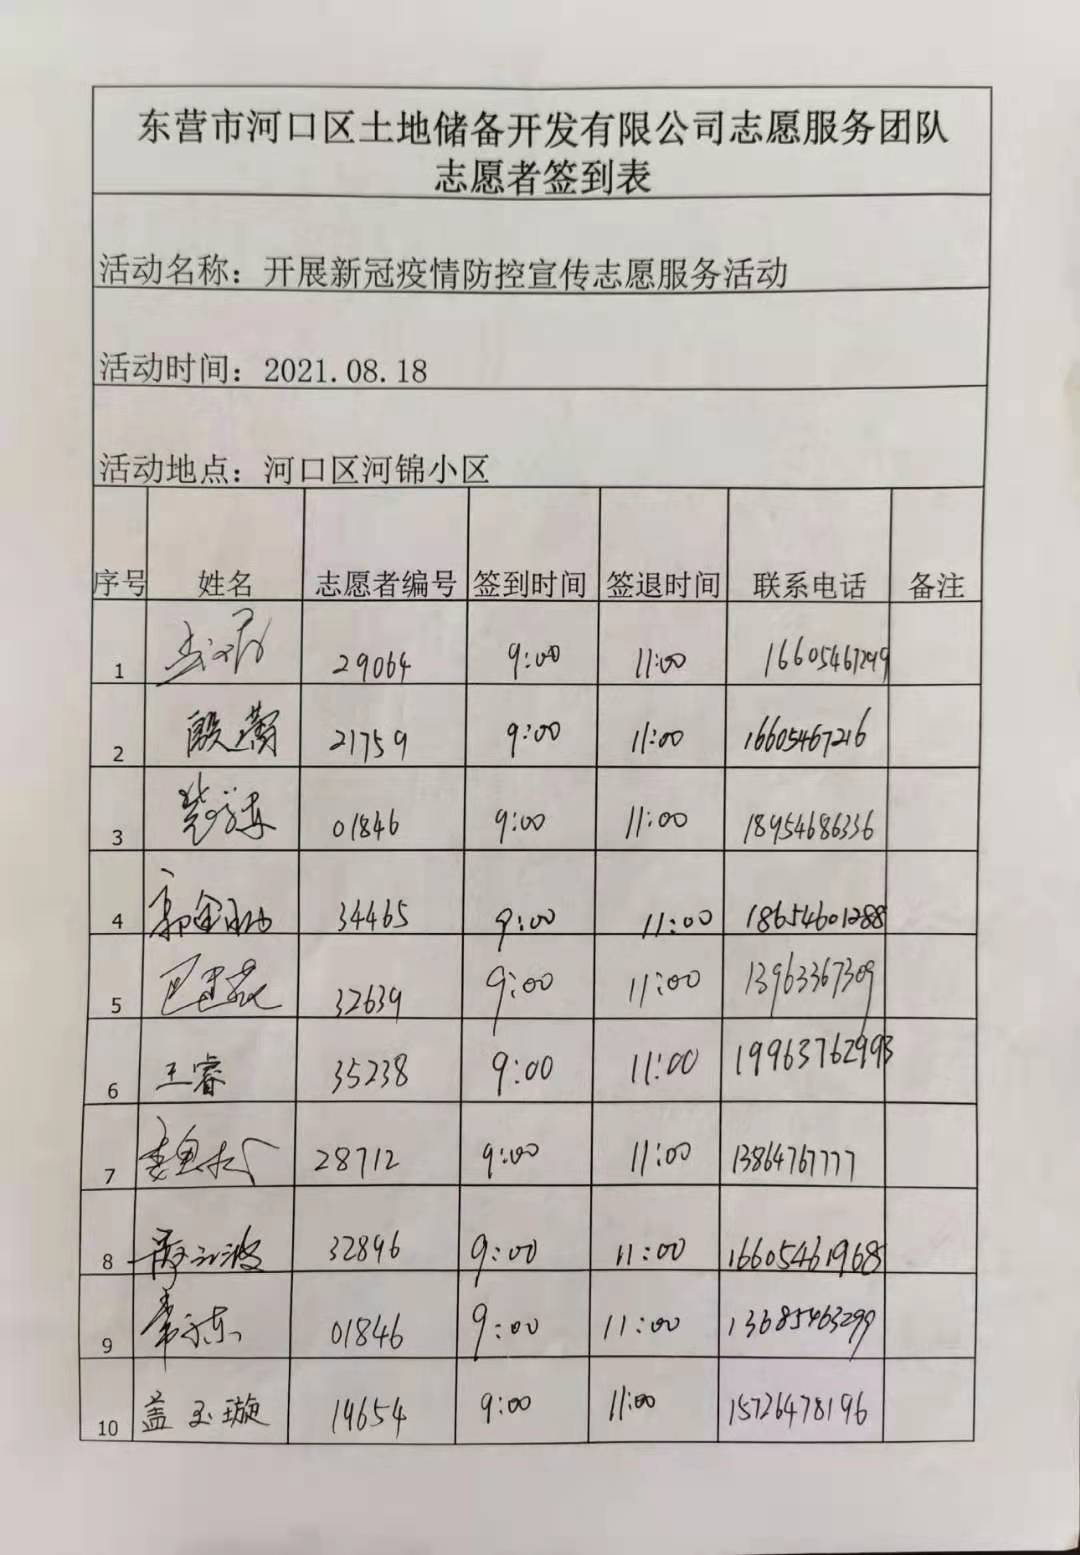 东营市河口区土地储备开发有限公司志愿服务团队
志愿者签到表
活动名称：开展新冠疫情防控宣传志愿服务活动
活动时间：2021.08.18
活动地点：河口区河锦小区
序号 姓名 志愿者编号 签到时间 签退时间 联系电话 备注
1 29064 9:00 11:00 16605467299
2 21759 9:00 11:00 16605467216
3 01846 9:00 11:00 18954686336
4 34465 9:00 11:00 18654601288
5 32639 9:00 11:00 13963367309
6 王睿 35238 9:00 11:00 19963762993
7 28712 9:00 11:00 13864767777
8 32896 9:00 11:00 16605461968
9 01846 9:00 11:00 13685463299
10 盖玉璇 19654 9:00 11:00 15726478196